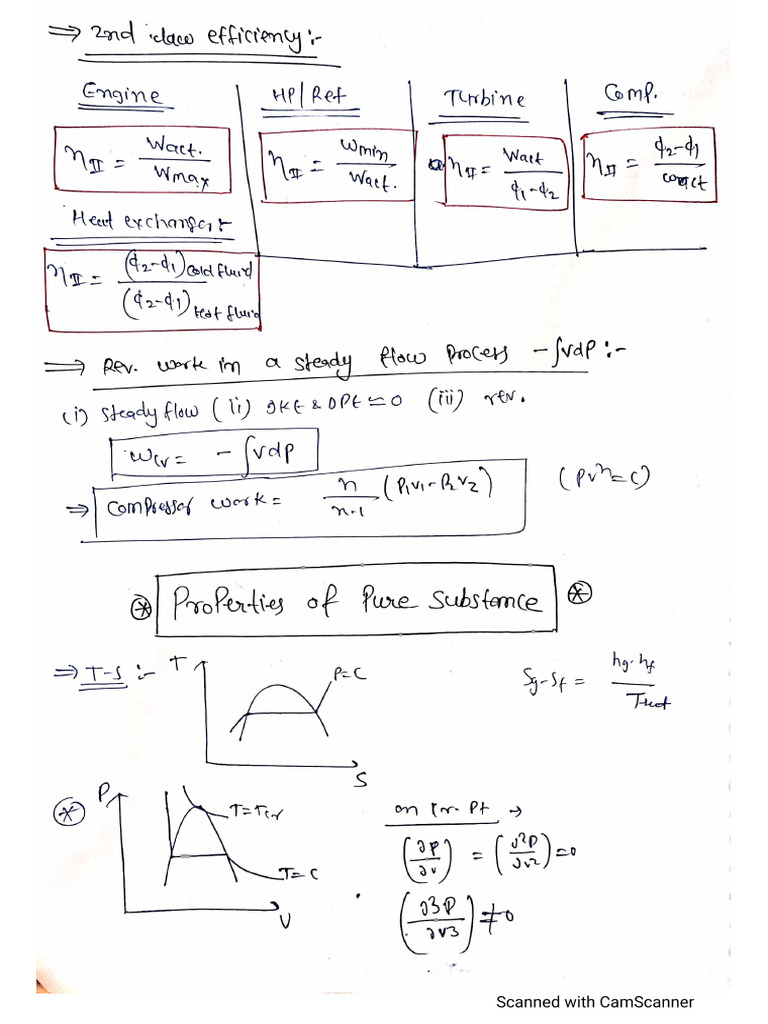 ⇒ 2nd law efficiency:-
Engine
HP/Ref
Turbine
Comp.
η_II = Wact. / Wmax
η_II = Wmin / Wact.
η_II = Wact / ϕ1-ϕ2
η_II = ϕ2-ϕ1 / wact
Heat exchanger:-
η_II = (ϕ2-ϕ1) cold fluid / (ϕ2-ϕ1) hot fluid
⇒ Rev. work in a steady flow process -∫vdp:-
(i) steady flow (ii) ΔKE & ΔPE ≃ 0 (iii) rev.
Wcv = - ∫vdp
⇒ Compressor work = n / n-1 (P1V1-P2V2) (PVⁿ=C)
⊛ Properties of Pure Substance ⊛
⇒ T-S :-
T
P=C
S
Sg-Sf = hg-hf / Tsat
⊛
P
T=Tcr
T=C
V
on cr. Pt →
(∂P/∂v) = (∂2P/∂v2) = 0
(∂3P/∂v3) ≠ 0
Scanned with CamScanner